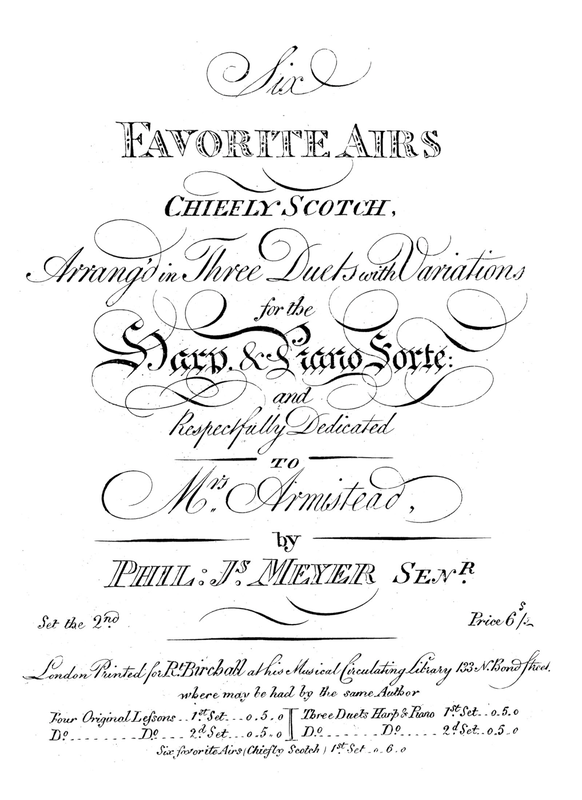 Six
FAVORITE AIRS
CHIEFLY SCOTCH,
Arrang'd in Three Duets with Variations
for the
Harp. & Piano Forte:
and
Respectfully Dedicated
TO
Mrs. Armistead,
by
PHIL: Js. MEYER SENR.
Set the 2nd
Price 6s/-
London Printed for Rt. Birchall at his Musical Circulating Library 133 N. Bond Street.
where may be had by the same Author
Four Original Lessons .. 1st Set... 0.5.0
Do. ........ Do. ... 2d Set... 0.5.0
Three Duets Harp & Piano 1st Set.. 0.5.0
Do. ........ Do. ...... 2d Set.. 0.5.0
Six favorite Airs (Chiefly Scotch) 1st Set .. 0.6.0